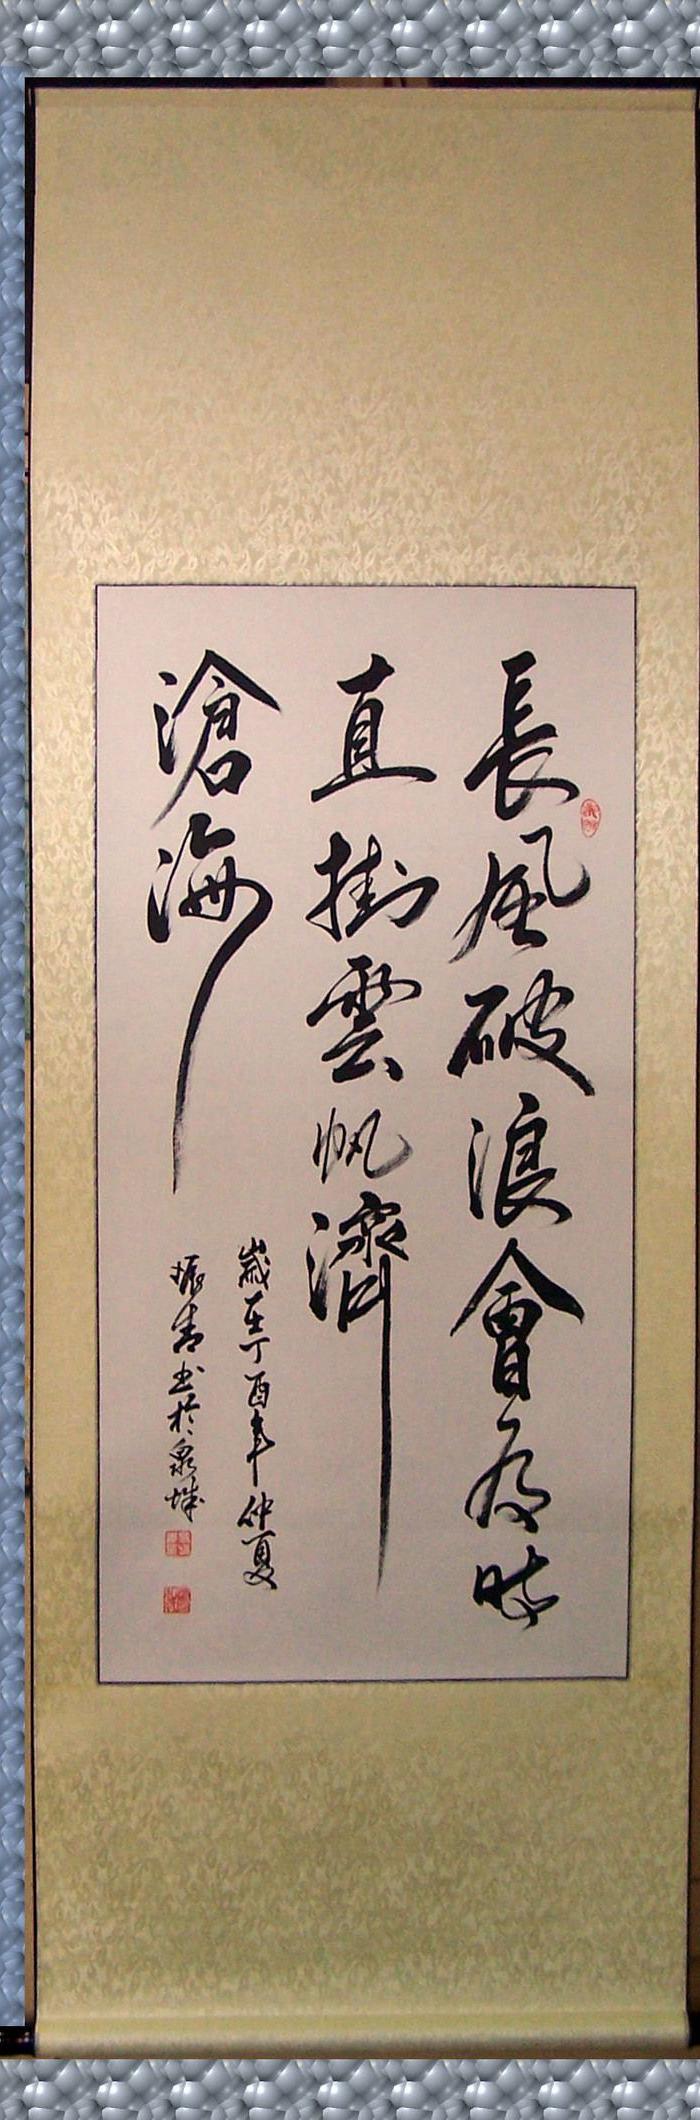 長風破浪會有時
直掛雲帆濟
滄海
歲在丁酉年仲夏
振清书於泉城